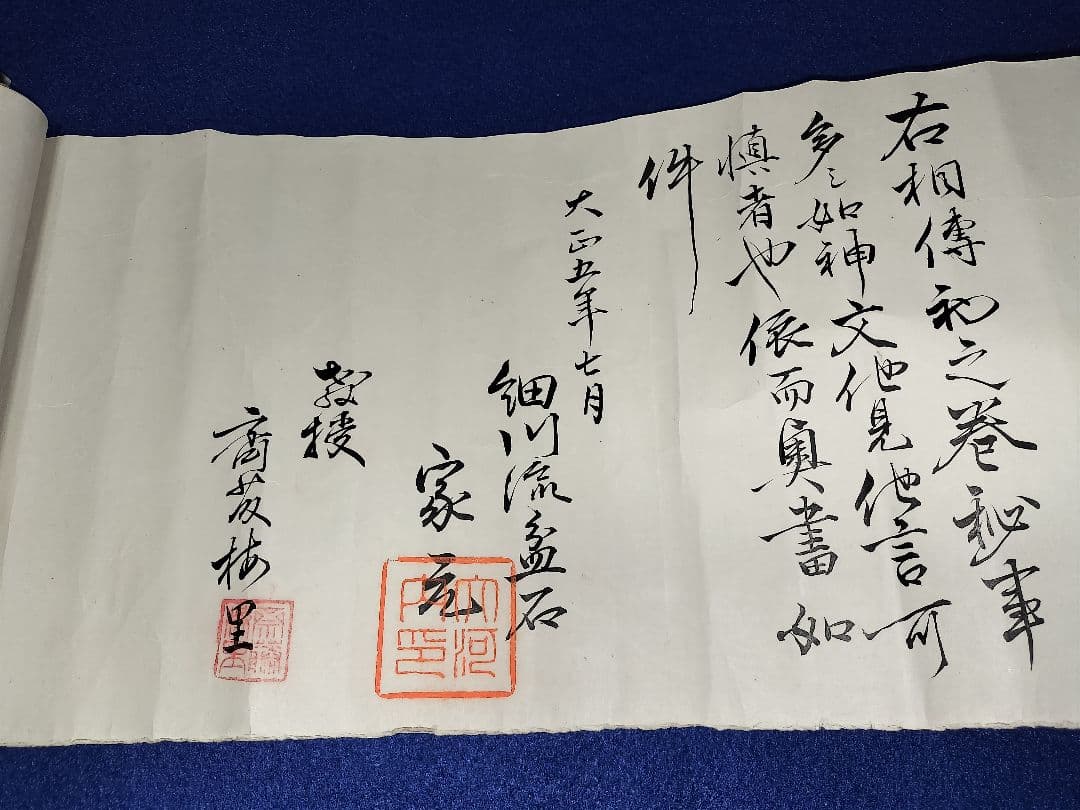 右相傳初之巻秘事
多々如神文他見他言可
慎者也依而奥書如
件
大正五年七月
細川流盆石
家元
教授
斎藤梅里